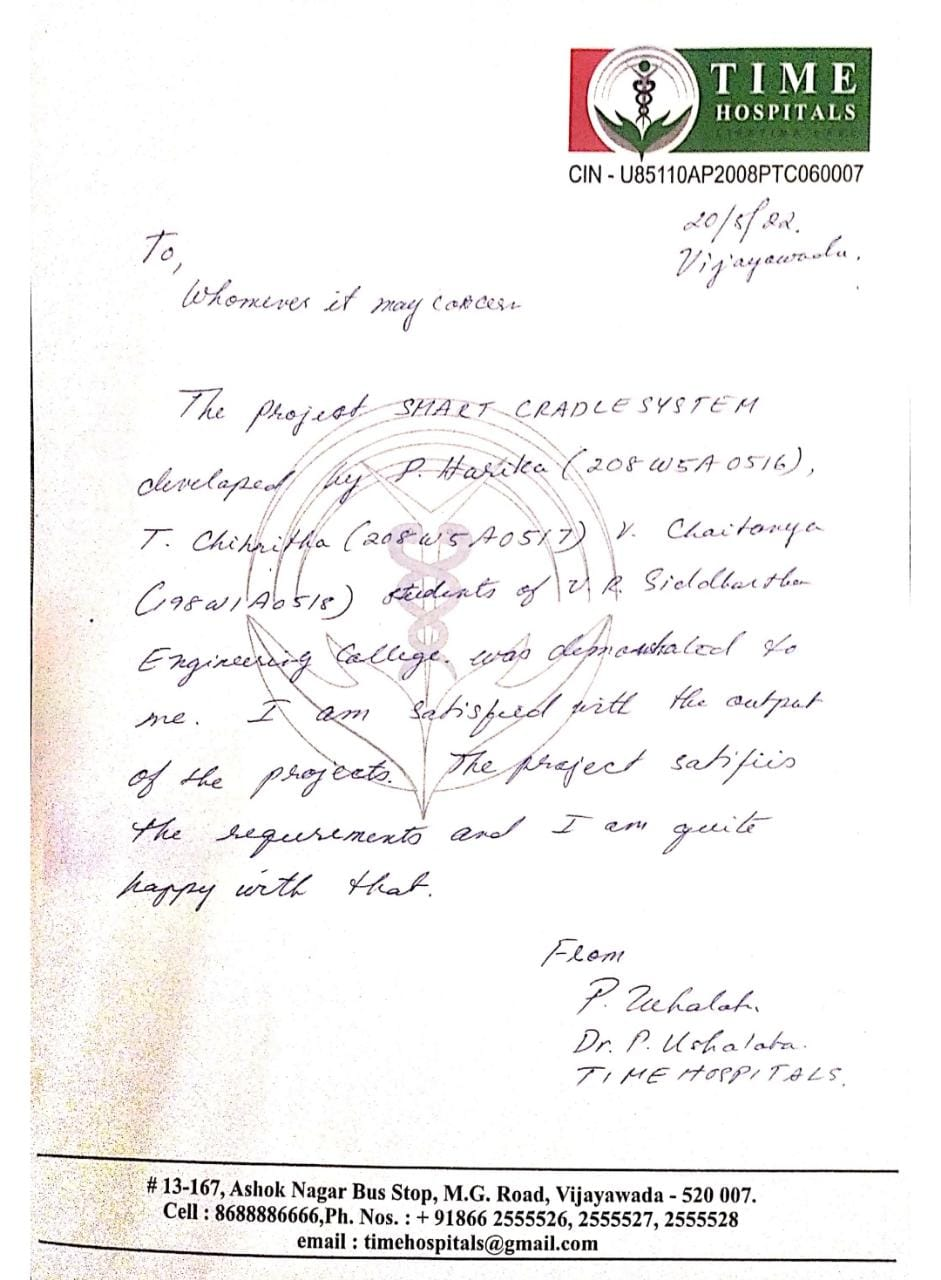 TIME
HOSPITALS
CIN - U85110AP2008PTC060007
20/5/22.
Vijayawada.
To,
Whomever it may concern
The project SMART CRADLE SYSTEM
developed by P. Harika (208W5A0516),
T. Chihnitha (208W5A0517) V. Chaitanya
(198W1A0518) students of V. R. Siddhartha
Engineering College. was demonstrated to
me. I am satisfied with the output
of the projects. The project satifiis
the requrements and I am quite
happy with that.
From
Dr. P. Ushalata.
TIME HOSPITALS.
# 13-167, Ashok Nagar Bus Stop, M.G. Road, Vijayawada - 520 007.
Cell : 8688886666,Ph. Nos. : + 91866 2555526, 2555527, 2555528
email : timehospitals@gmail.com